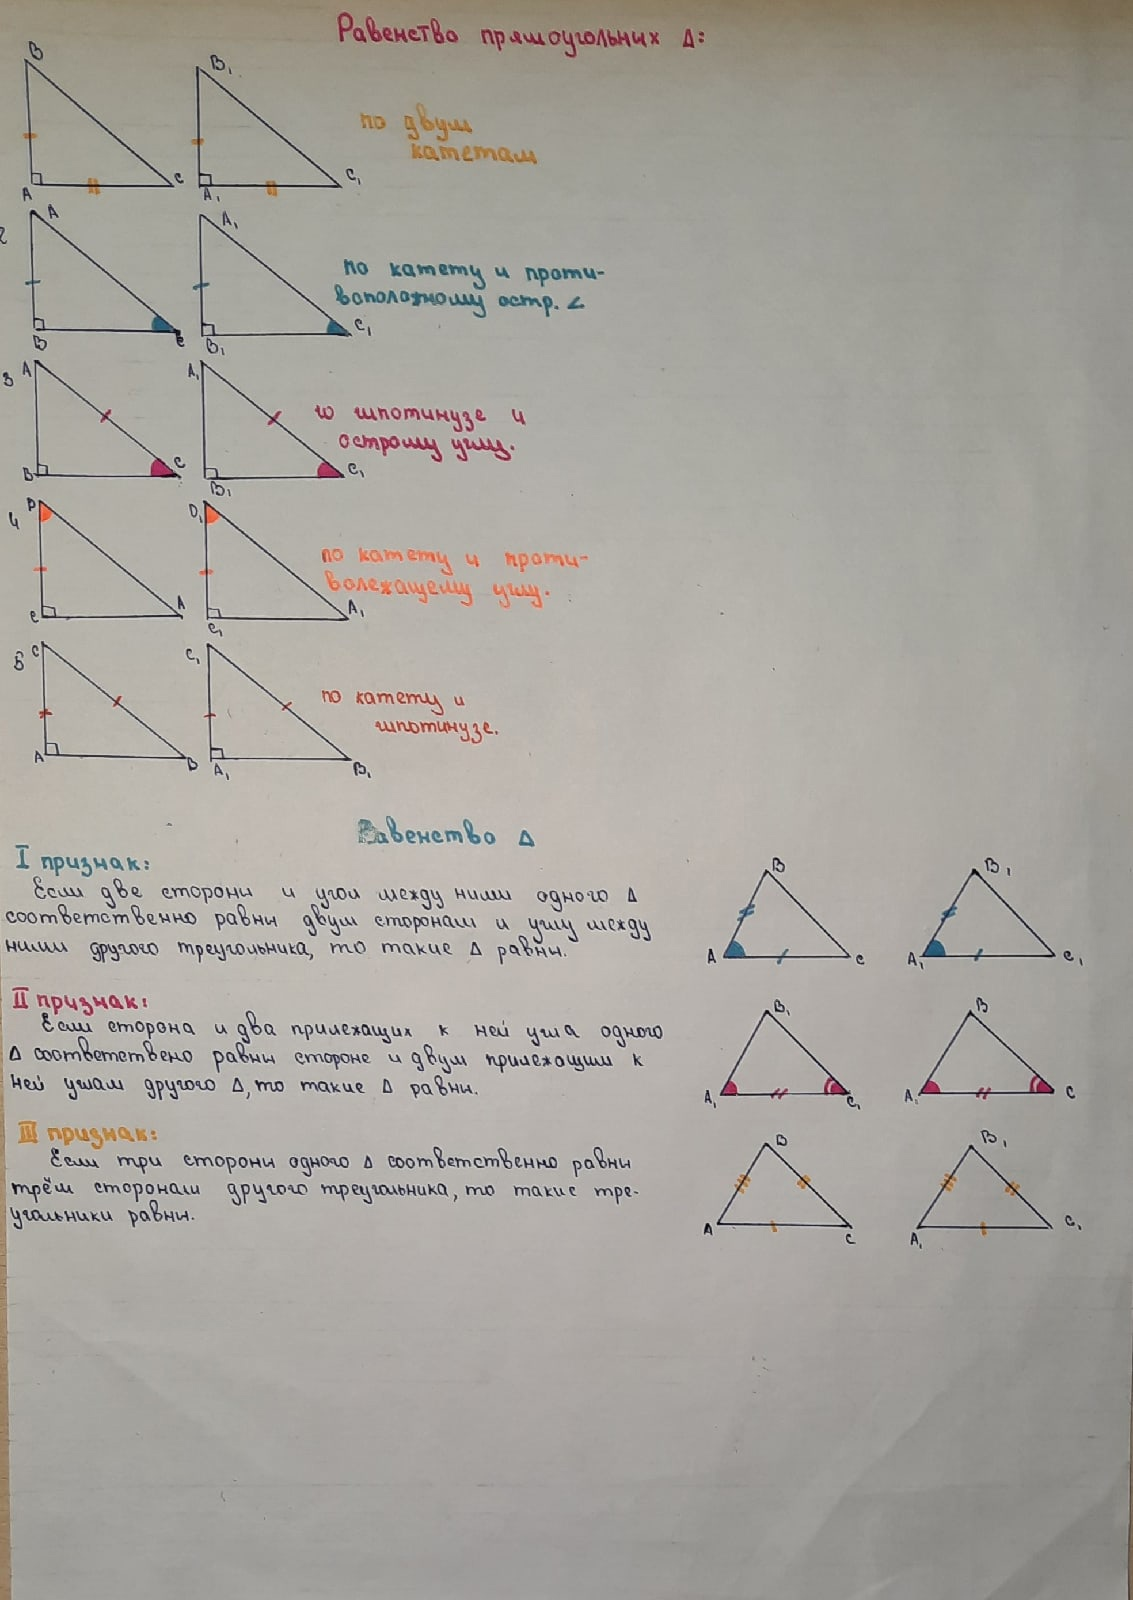 Равенство прямоугольних Δ:
B B₁
по двум
катетам
A C A₁ C₁
2 A A₁
по катету и проти-
воположному остр. ∠
B C B₁ C₁
3 A A₁
по гипотинузе и
острому углу.
B C B₁ C₁
4 D D₁
по катету и проти-
волежащему углу.
C A C₁ A₁
5 C C₁
по катету и
гипотинузе.
A B A₁ B₁
Равенство Δ
I признак:
Если две сторони и угол между ними одного Δ
соответственно равни двум сторонам и углу между
ними другого треугольника, то такие Δ равни.
B B₁
A C A₁ C₁
II признак:
Если сторона и два прилежащих к ней угла одного
Δ соответствено равни стороне и двум прилежащим к
ней углам другого Δ, то такие Δ равни.
B₁ B
A₁ C₁ A₁ C
III признак:
Если три сторони одного Δ соответственно равни
трём сторонам другого треугольника, то такие тре-
угольники равни.
B B₁
A C A₁ C₁